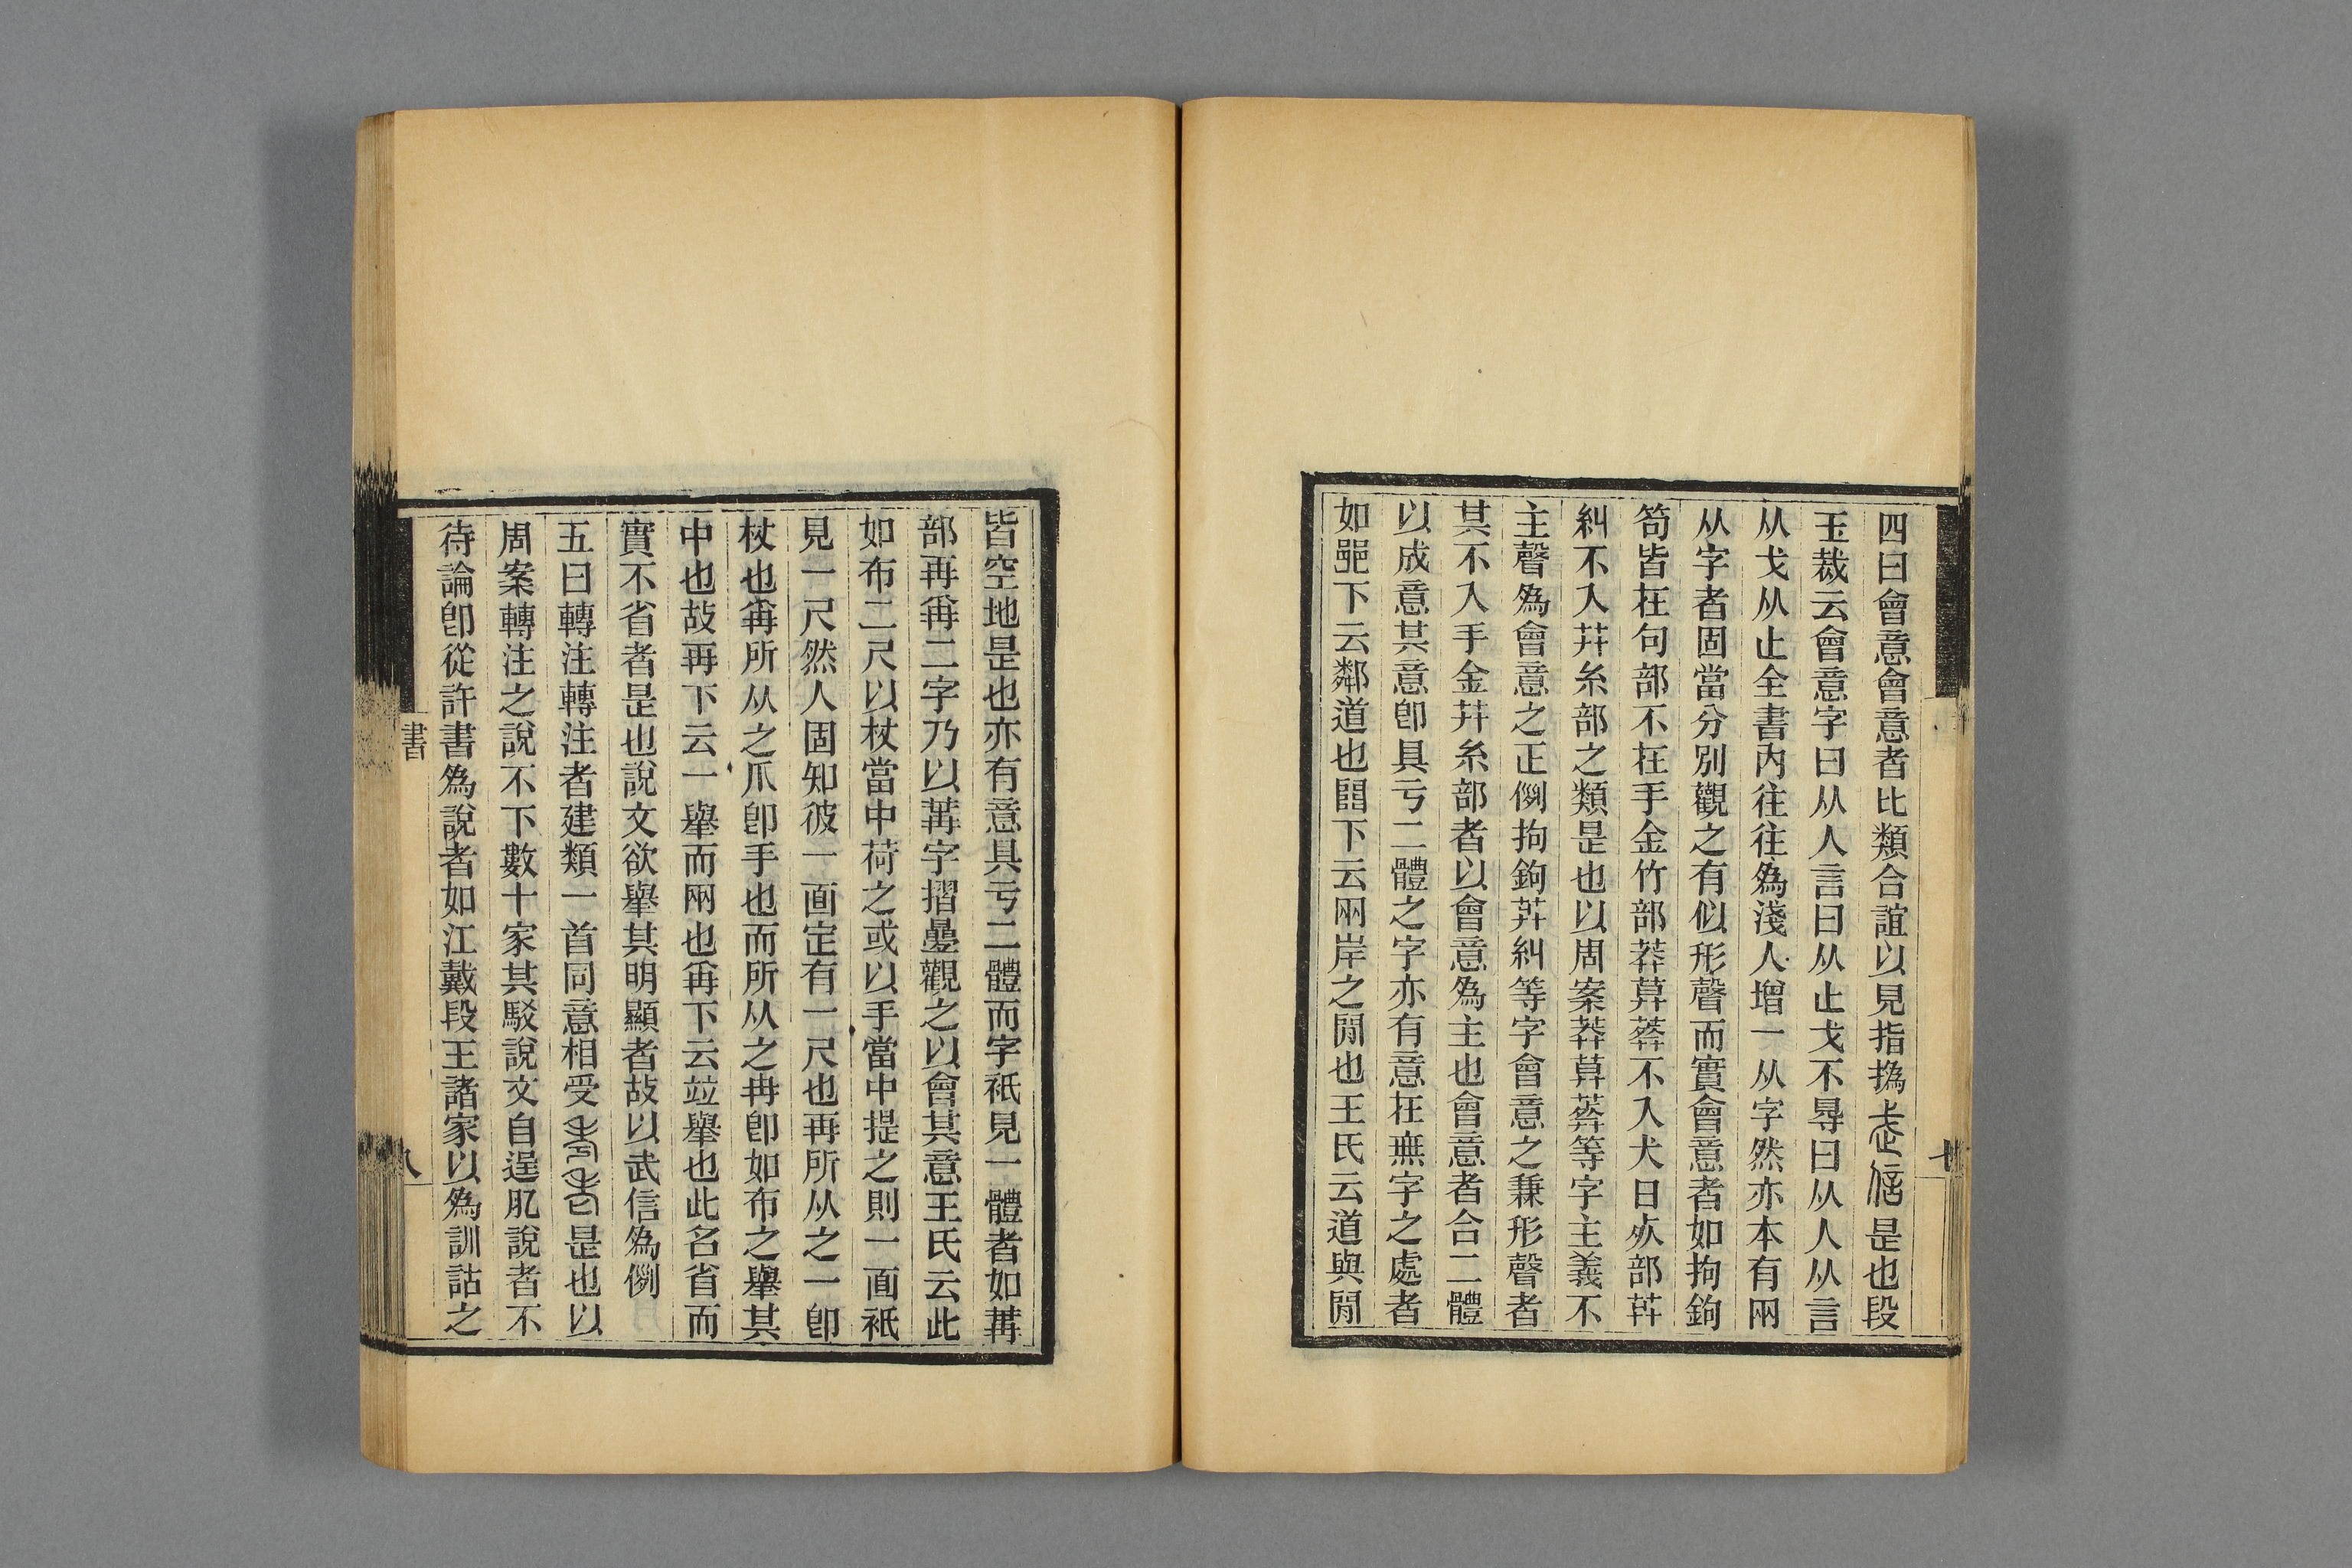 四曰會意會意者比類合誼以見指撝武信是也段
玉裁云會意字曰从人言曰从止戈不㝵曰从人从言
从戈从止全書內往往爲淺人增一从字然亦本有兩
从字者固當分別觀之有似形聲而實會意者如拘鉤
笱皆在句部不在手金竹部莽葬不入犬日歺部茻
糾不入茻糸部之類是也以周案莽葬等字主義不
主聲爲會意之正例拘鉤糾等字會意之兼形聲者
其不入手金茻糸部者以會意爲主也會意者合二體
以成意其意卽具亏二體之字亦有意在無字之處者
如𨛜下云鄰道也𨳿下云兩岸之閒也王氏云道與閒
皆空地是也亦有意具亏二體而字祇見一體者如冓
部再爯二字乃以冓字摺疊觀之以會其意王氏云此
如布二尺以杖當中荷之或以手當中提之則一面祇
見一尺然人固知彼一面定有一尺也再所从之一卽
杖也爯所从之爪卽手也而所从之冉卽如布之舉其
中也故再下云一舉而兩也爯下云竝舉也此名省而
實不省者是也說文欲舉其明顯者故以武信爲例
五曰轉注轉注者建類一首同意相受考老是也以
周案轉注之說不下數十家其駁說文自逞肊說者不
待論卽從許書爲說者如江戴段王諸家以爲訓詁之
書
八